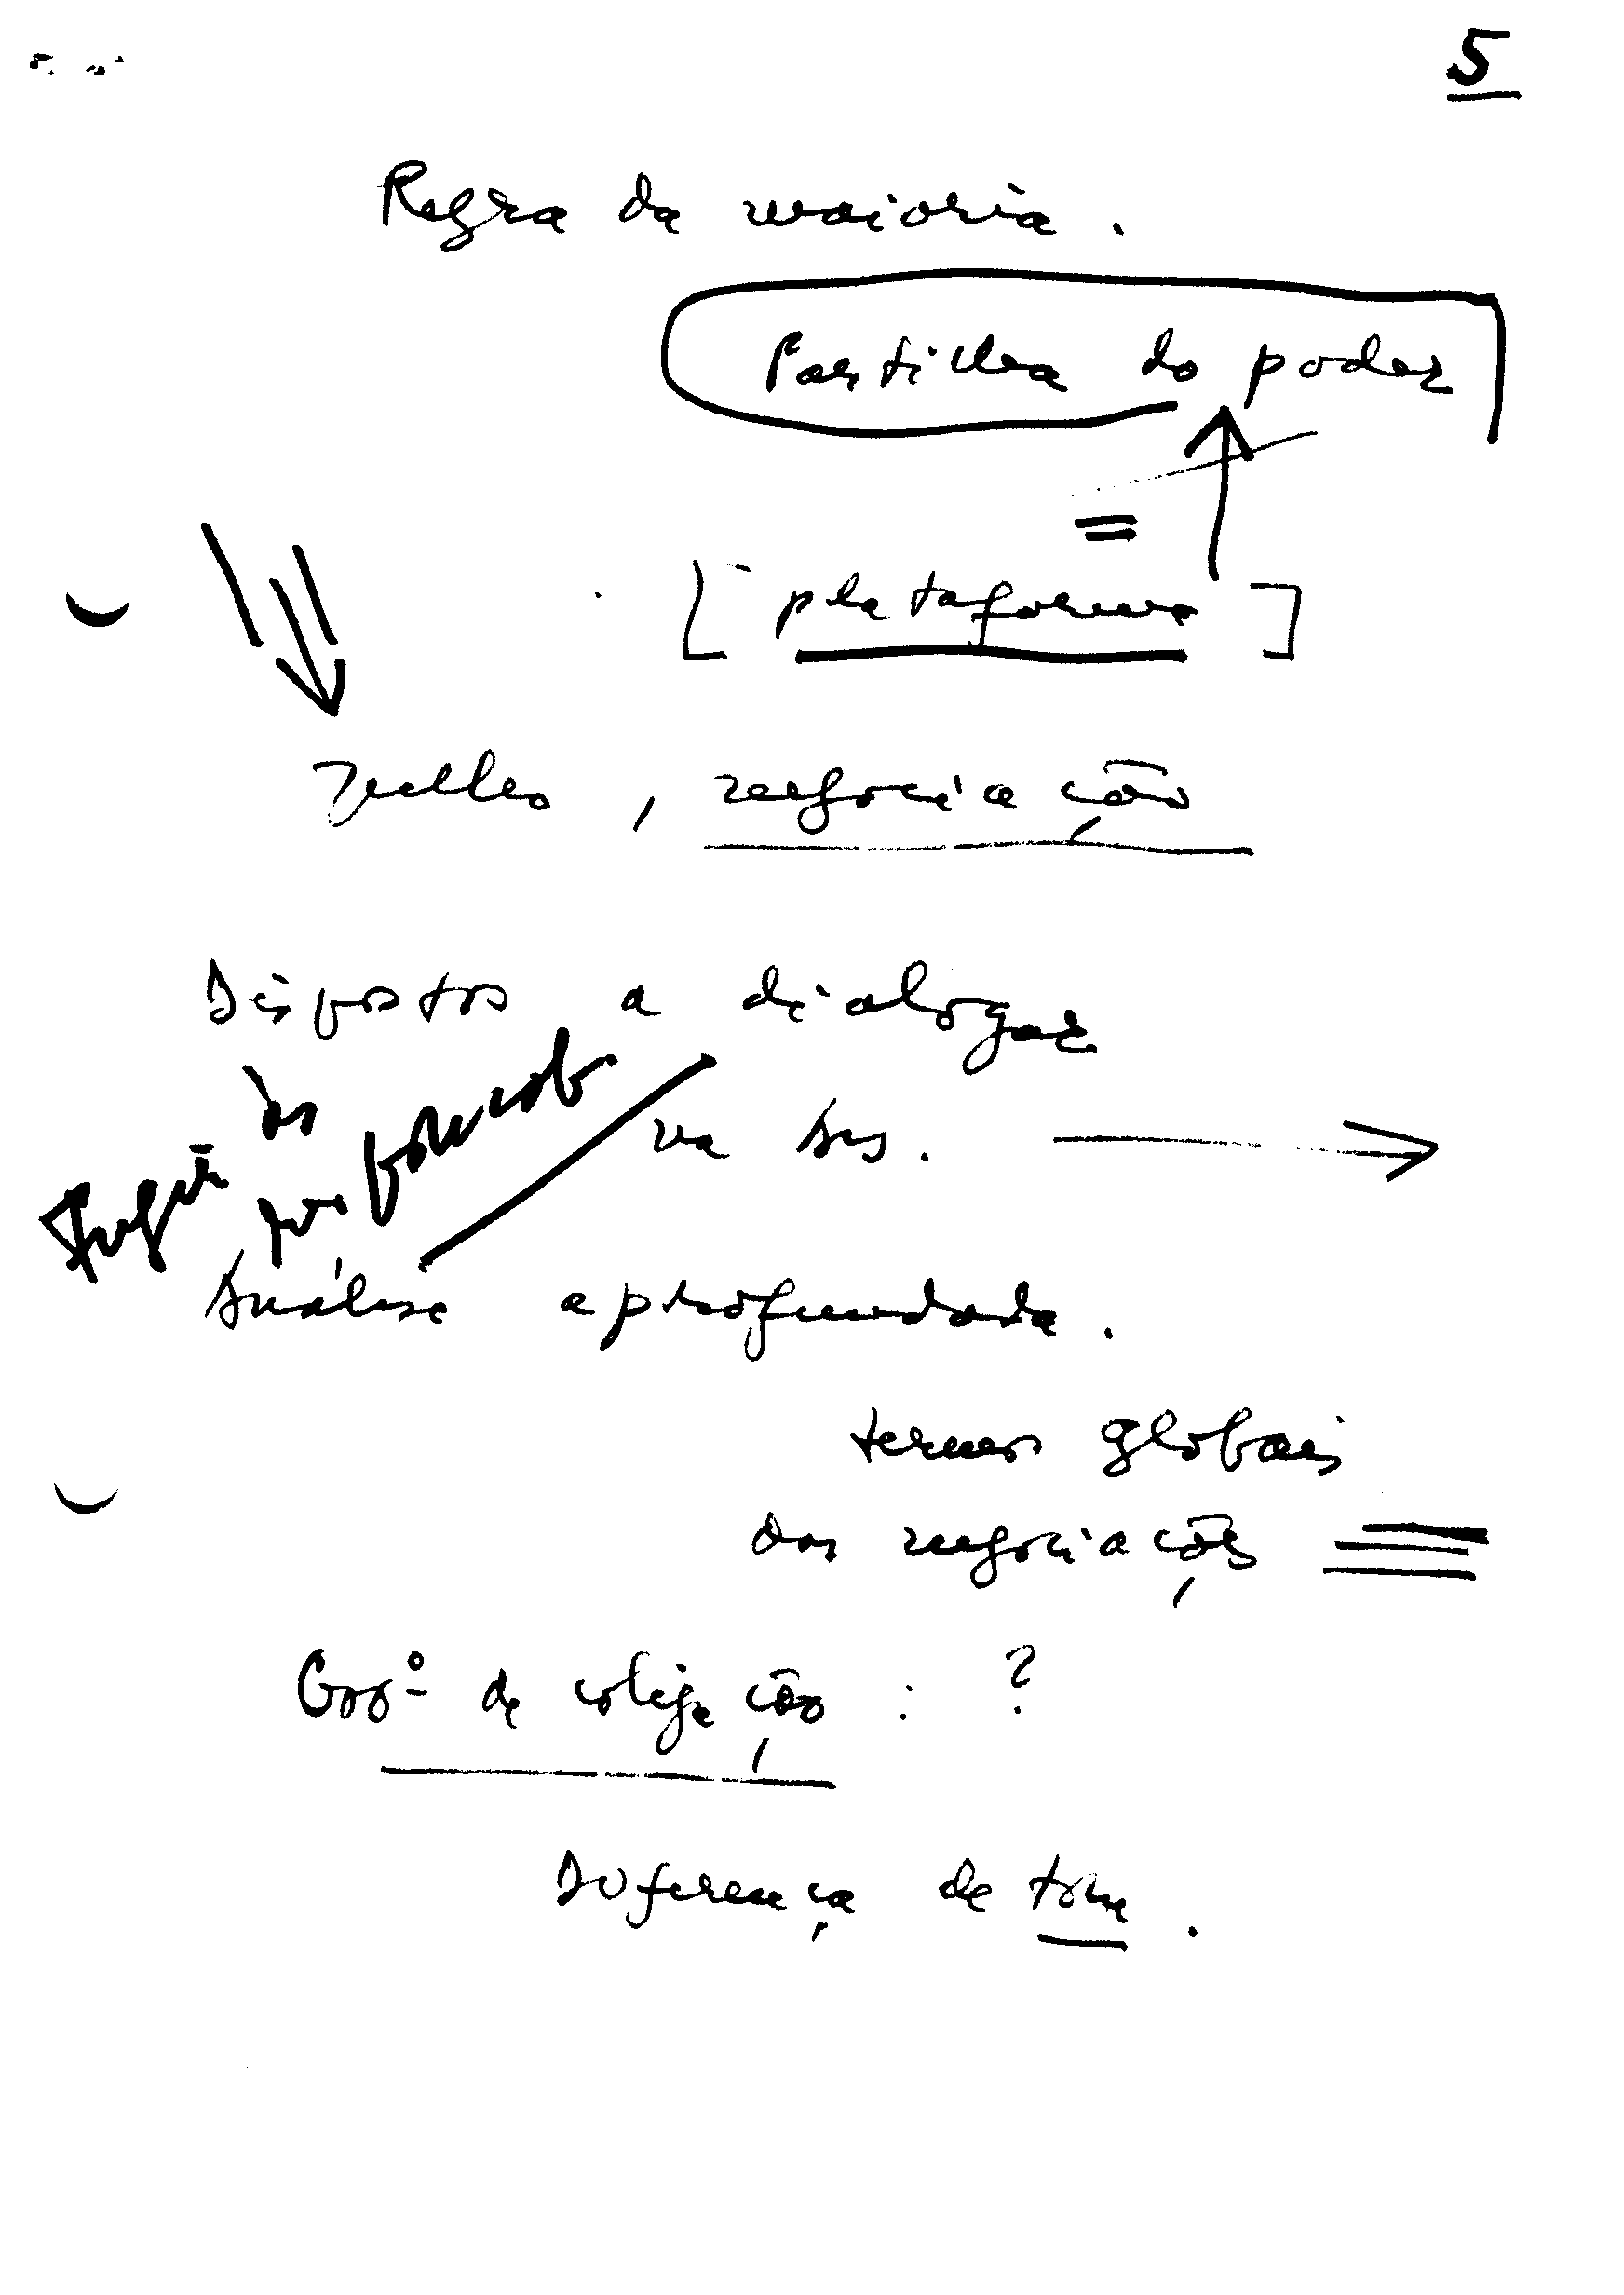 5
Regra da maioria.
Partilha do poder
=
[plataforma]
, negociação
Dispostos a dialogar
na
Análise aprofundada.
termos globais
das negociações
Govº de coligação : ?
Diferença de tom.